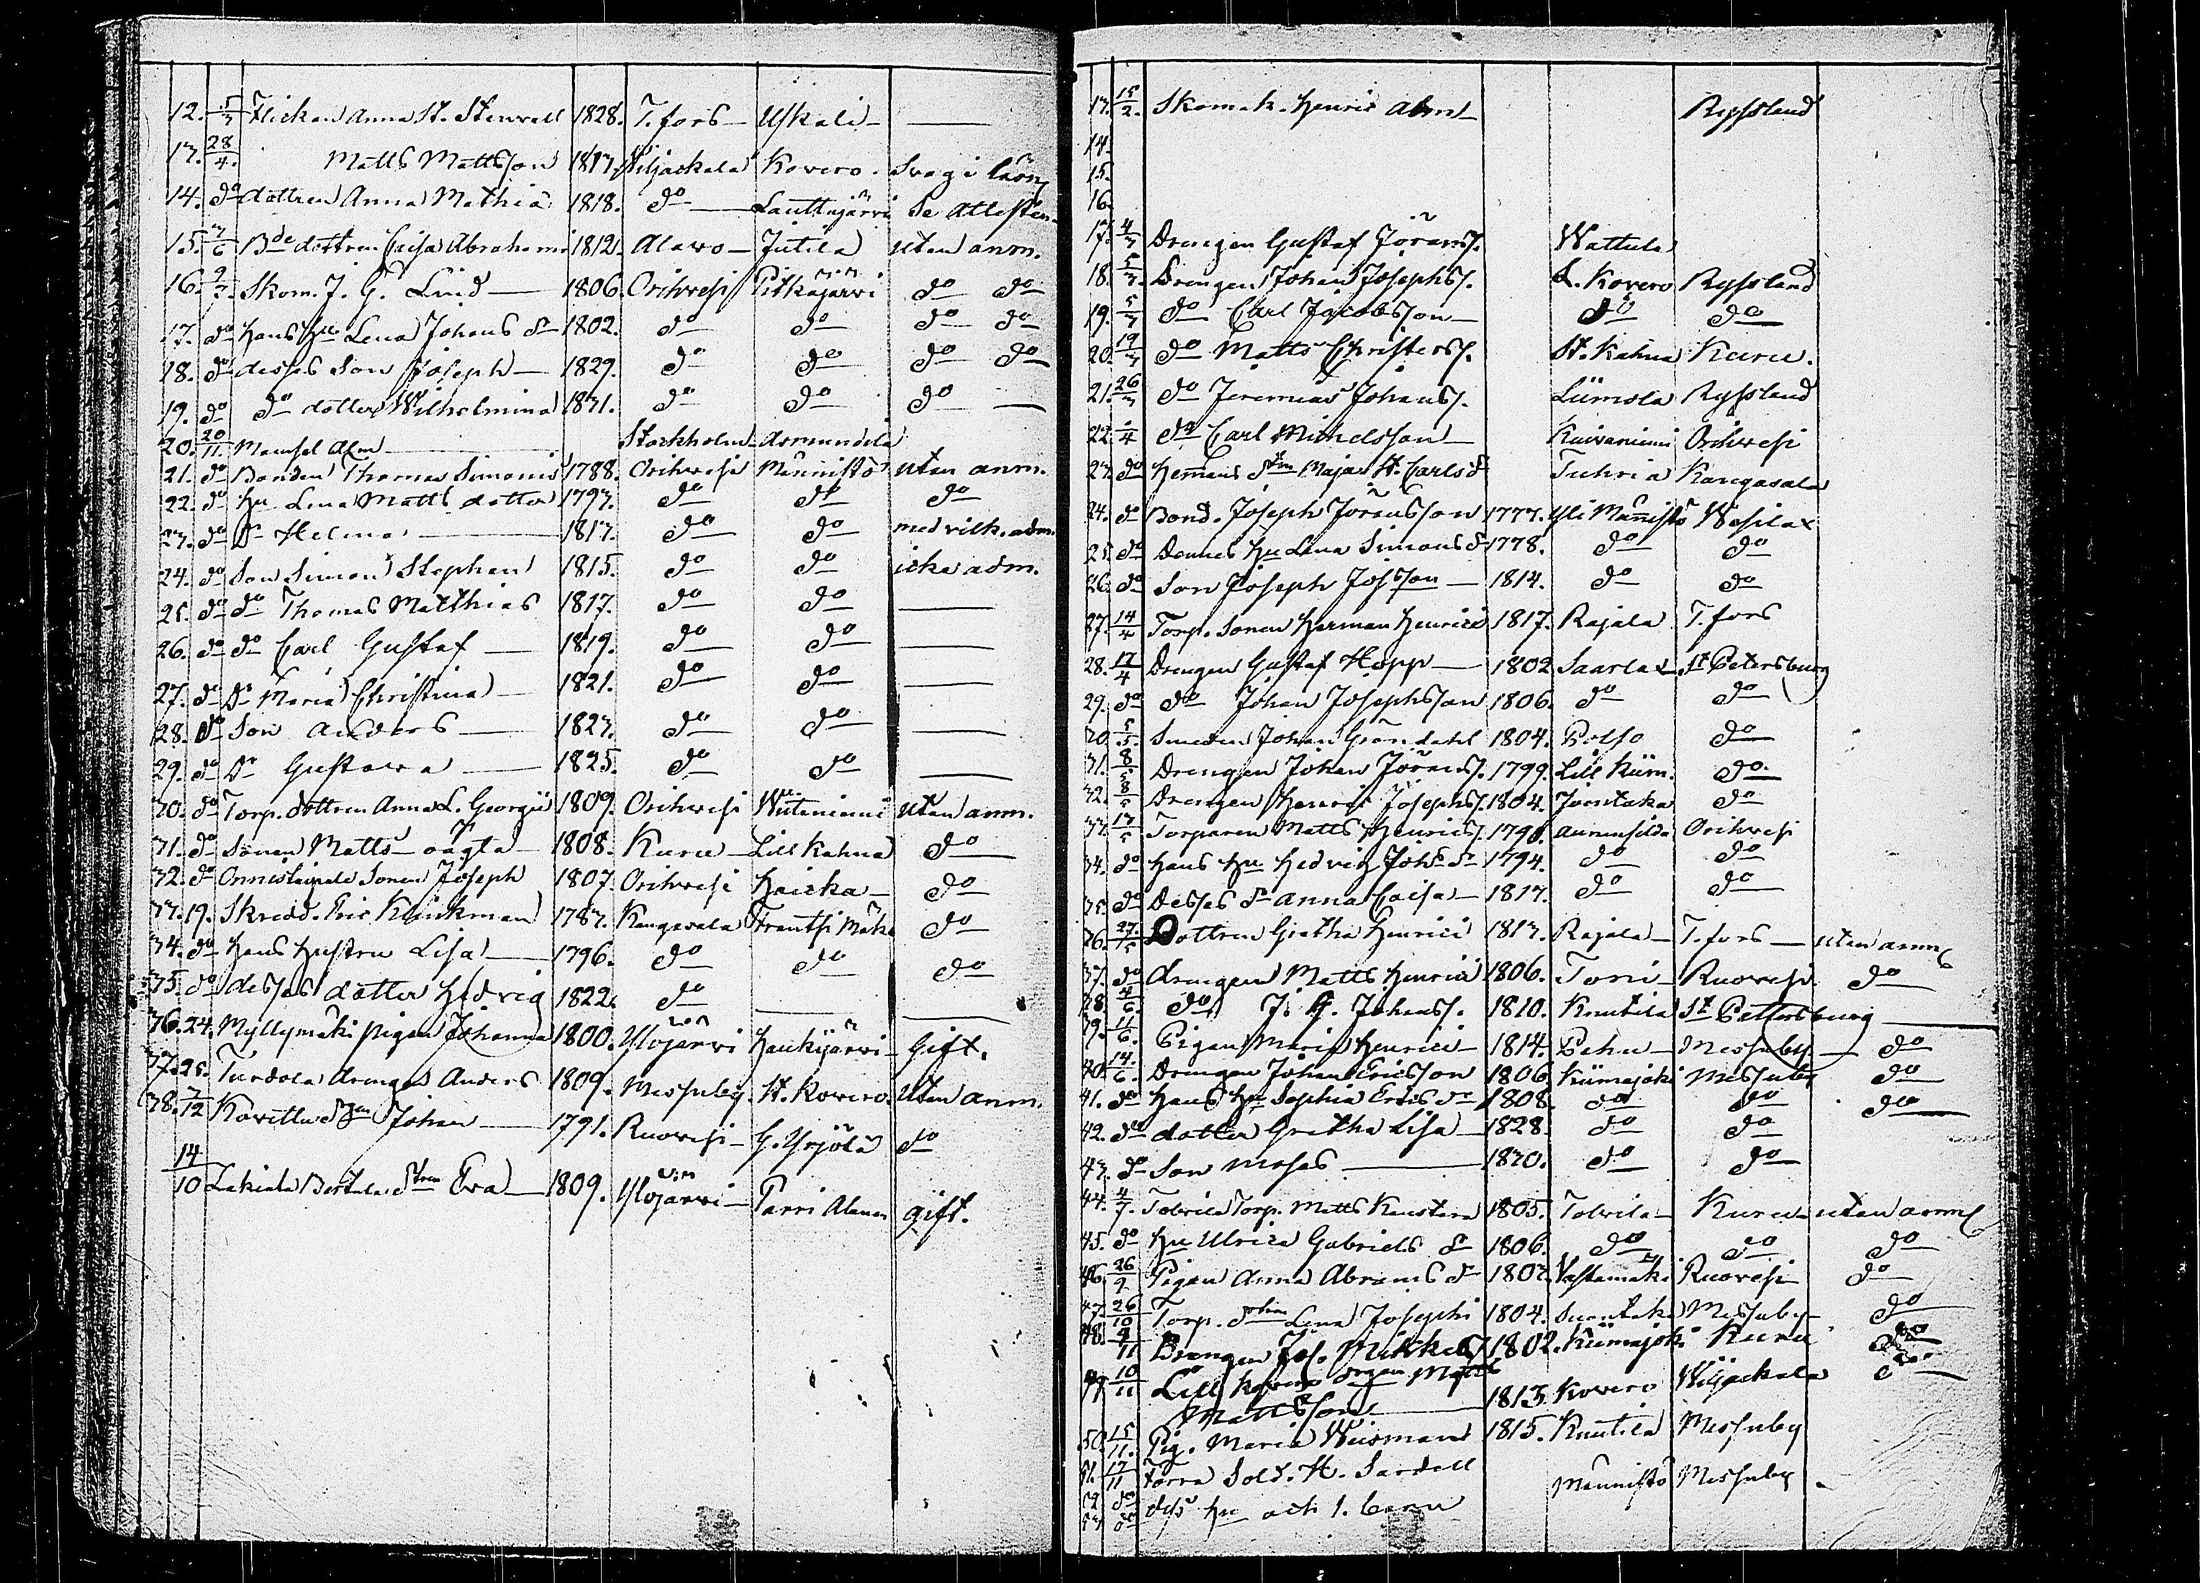 12. 5/3 Flickan Anna St. Stenvall 1828. T.fors Uskali
13. 28/4. Matts Mattsson 1813. Wiljackala Kovero. Svag i läsn.
14. do dottren Anna Mathiæ 1818. do Lauttajärvi Se attesten
15. 3/6 Bde dottren Caisa Abrahami 1812. Alavo Jutila utan anm.
16. 2/7. Skom. J. G. Lind 1806. Orihvesi Pitkäjärvi do do
17. do Hans Hu Lena Johans dr 1802. do do do do
18. do desses Son Joseph 1829. do do do do
19. do do dotter Wilhelmina 1831. do do do
20. 20/11. Mamsel Alm Stockholm
21. do Bonden Thomas Simonis 1788. Orihvesi Männistö utan anm.
22. do Hu Lena Matts dotter 1793. do do do
23. do Dr Helena 1813. do do med vilk. adm.
24. do Son Simon Stephan 1815. do do icke adm.
25. do do Thomas Matthias 1817. do do
26. do do Carl Gustaf 1819. do do
27. do Dr Maria Christina 1821. do do
28. do Son Anders 1823. do do
29. do Dr Gustava 1825. do do
30. do Torp. dottren Anna L. Georgii 1809. Orihvesi utan anm.
31. do Sonen Matts oägta 1808. Kuru Lill Kahna do
32. do Sonen Joseph 1807. Orihvesi Haicka do
33. 19. Skredd. Eric Klinkman 1783. Kangasala Frantsi Mäki do
34. do Hans Hustru Lisa 1796. do do do
35. do desses dotter Hedvig 1822. do
36. 24. Myllymäki pigan Johanna 1800. Ylöjärvi Haukijärvi Gift.
37. 25. Turdola drengen Anders 1809. Messuby St. Kovero. Utan anm.
38. 3/12 Johan 1791. Ruovesi G. Yrjölä do
14/10 Lakiala Bertula dtren Eva 1809. Ylöjärvi Parri gift.
13. 15/2. Skomak. Henric Ryssland
14.
15.
16.
17. 4/3 Drengen Gustaf Jöranss. Wattula
18. 5/3. Drengen Johan Josephs. L. Kovero Ryssland
19. 5/3 do Carl Jacobsson do do
20. 19/3 do Matts Christerss. St. Kahna Kuru.
21. 26/3 do Jeremias Johanss. Liimola Ryssland
22. 1/4 do Carl Michelsson Kaivaniemi Orihvesi
23. do Maja St. Carls dr Kangasala
24. do Bond. Joseph Jöransson 1777. Yli Männistö Wesilax
25. do Dennes Hu Lena Simons dr 1778. do do
26. do Son Joseph Josson 1814. do do
27. 14/4 Torp. Sonen Herman Henrici 1817. Rajala T.fors
28. 17/4 Drengen Gustaf Hopp 1802 Saarla St Petersburg
29. do do Johan Josephsson 1806. do do
30. 5/5. Smeden Johan Gröndahl 1804. Polso do
31. 8/5 Drengen Johan Jöranss. 1799. Lill Kiim. do
32. 8/5 Drengen Henric Josephs. 1804. do
33. 13/5 Torparen Matts Henrics. 1790. Orihvesi
34. do Hans Hu Hedvig Johs dr 1794. do do
35. do Desses dr Anna Caisa 1817. do do
36. 27/5 Dottren Gretha Henrici 1813. Rajala T.fors utan anm.
37. do drengen Matts Henrici 1806. Torri Ruovesi do
38. 4/6. do J. G. Johanss. 1810. Knutila St Pettersburg
39. 11/6. Pigan Maria Henrici 1814. Pehu Messuby do
40. 14/6. Drengen Johan Ericsson 1806. Kiimajoki Messuby do
41. do Hans Hu Sophia Erics dr 1808. do do do
42. do dotter Gretha Lisa 1828. do do
43. do Son Moses 1830. do do
44. 4/7. Tolvila Torp. Matts 1805. Tolvila Kuru utan anm.
45. do Hu Ulrica Gabriels dr 1806. do do do
46. 26/9 Pigan Anna Abrams dr Vastamäki Ruovesi do
47. 26/10 Torp. Lena Josephi 1804. Messuby do
48. 9/11 Drengen Jos. Mickels. 1802. Kiimajoki Kuru do
49. 10/11 Lill Kovero drgen Matts
Mattsson 1813. Kovero Wiljackala do
50. 15/11. Pig. Maria Wiisman 1815. Knutila Messuby
51. 17/11 Förra Sold. H. Sardell Männistö Messuby
52. do dess Hu och 1. barn
53. do